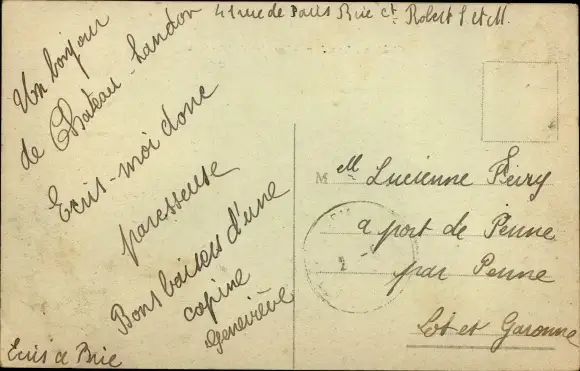 41 rue de Paris Brie Cte Robert S et M.
Un bonjour
de Château-Landon
Ecris-moi donc
paresseuse
Bons baisers d'une
copine
Geneviève
Ecris a Brie
Melle Lucienne
a port de Penne
par Penne
Lot et Garonne